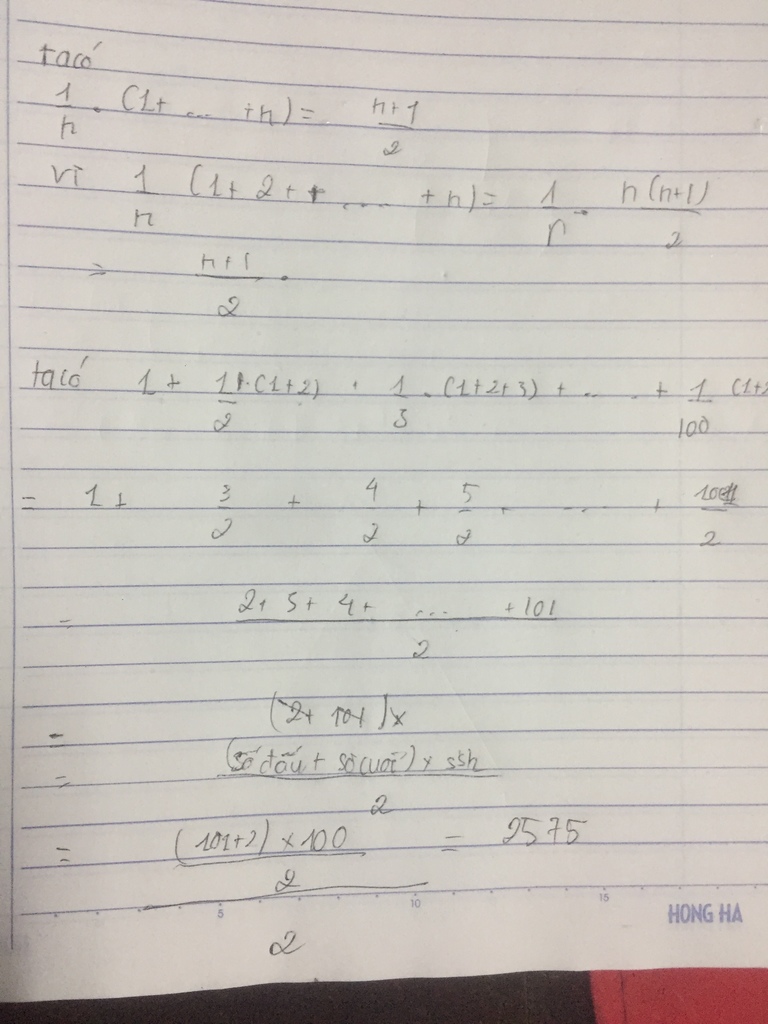 ta có
1/n . (1+ ... +n) = n+1/2
vì 1/n (1+2+ .... +n) = 1/n . n(n+1)/2
= n+1/2 .
ta có 1 + 1/2 . (1+2) + 1/3 . (1+2+3) + ..... + 1/100 (1+2
= 1 + 3/2 + 4/2 + 5/2 + ..... + 101/2
= 2+3+4+ .... +101/2
= (2+101)x
= (số đầu + số cuối) x ssh/2
= (101+2) x 100/2/2 = 2575
5 10 15
HONG HA